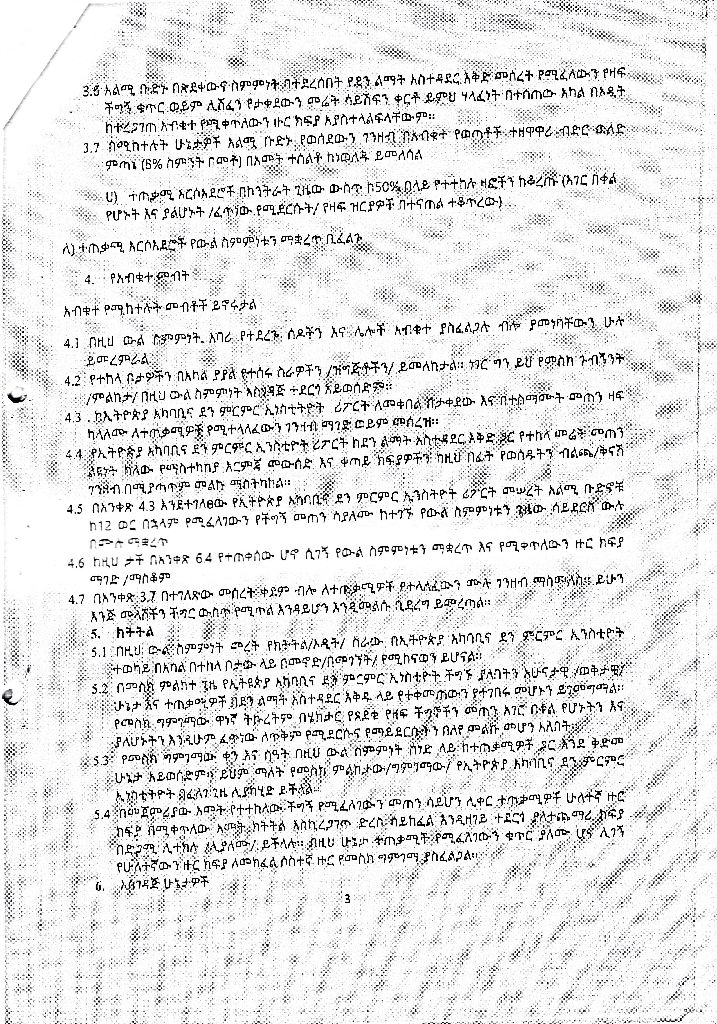 3.6 አልሚ ቡድኑ በጽደቀውና ስምምነት በተደረሰበት የደን ልማት አስተዳደር እቅድ መሰረት የሚፈለውን የዛፍ
ችግኝ ቁጥር ወይም ሊሸፈን የታቀደውን መሬት ሳይሸፍን ቀርቶ ይህም ሃላፊነት በተሰጠው አካል በኦዲት
ከተረጋገጠ አብቁተ የሚቀጥለውን ዙር ክፍያ አያስተላልፍላቸውም፡፡
3.7 በሚከተሉት ሁኔታዎች አልሚ ቡድኑ የወሰደውን ገንዘብ በአብቁተ የወጣቶች ተዘዋዋሪ ብድር ወለድ
ምጣኔ (8% ስምንት ፐመቶ) በአመት ተሰልቶ ከነወለዱ ይመለሳል
ሀ) ተጠቃሚ አርሶአደሮች በኮንትራት ጊዜው ውስጥ ከ50% በላይ የተተከሉ ዛፎችን ከቆረጡ (አገር በቀል
የሆኑት እና ያልሆኑት /ፈጥነው የሚደርሱት/ የዛፍ ዝርያዎች በተናጠል ተቆጥረው)
ለ) ተጠቃሚ አርሶአደሮች የውል ስምምነቱን ማቋረጥ ቢፈልጉ
4. የአብቁተ መብት
አብቁተ የሚከተሉት መብቶች ይኖሩታል
4.1 በዚህ ውል ስምምነት አባሪ የተደረጉ ሰዶችን እና ሌሎች አብቁተ ያስፈልጋሉ ብሎ ያመነባቸውን ሁሉ
ይመረምራል
4.2 የተከላ ቦታዎችን በአካል ያያል የተሰሩ ስራዎችን /ዝግጅቶችን/ ይመለከታል፡፡ ነገር ግን ይህ የመስክ ጉብኝት
/ምልከታ/ በዚህ ውል ስምምነት አስገዳጅ ተደርጎ አይወሰድም፡፡
4.3 ከኢትዮጵያ አካባቢና ደን ምርምር ኢንስቲትዮት ሪፖርት ለመቀበል በታቀደው እና በተስማሙት መጠን ዛፍ
ካላለሙ ለተጠቃሚዎቹ የሚተላለፈውን ገንዘብ ማገድ ወይም መሰረዝ፡፡
4.4 የኢትዮጵያ አካባቢና ደን ምርምር ኢንስቲዮት ሪፖርት ከደን ልማት አስተዳደር እቅድ ጋር የተከላ መሬት መጠን
ልዩነት ካለው የማስተካከያ እርምጃ መውሰድ እና ቀጣይ ክፍያዎችን ከዚህ በፊት የወሰዱትን ብልጫ/ቅናሽ
ገንዘብ በሚያጣጥም መልኩ ማስተካከል፡፡
4.5 በአንቀጽ 4.3 እንደተገለፀው የኢትዮጵያ አካባቢና ደን ምርምር ኢንስትዮት ሪፖርት መሠረት አልሚ ቡድኖቹ
ከ12 ወር በኋላም የሚፈለገውን የችግኝ መጠን ሳያለሙ ከተገኙ የውል ስምምነቱን ጊዜው ሳይደርስ ውሉ
በሙሉ ማቋረጥ
4.6 ከዚህ ታች በአንቀጽ 6.4 የተጠቀሰው ሆኖ ሲገኝ የውል ስምምነቱን ማቋረጥ እና የሚቀጥለውን ዙር ክፍያ
ማገድ /ማስቆም
4.7 በአንቀጽ 3.7 በተገለጸው መሰረት ቀደም ብሎ ለተጠቃሚዎች የተላለፈውን ሙሉ ገንዘብ ማስመለስ፡፡ ይሁን
እንጅ መላሾችን ችግር ውስጥ የሚጥል እንዳይሆን እንዲመልሱ ቢደረግ ይመረጣል፡፡
5. ክትትል
5.1 በዚህ ውል ስምምነት መረት የክትትል/ኦዲት/ ስራው በኢትዮጵያ አካባቢና ደን ምርምር ኢንስቲዮት
ተወካይ በአካል በተከላ ቦታው ላይ በመኖድ/በመገኘት/ የሚከናወን ይሆናል፡፡
5.2 በመስክ ምልከተ ጊዜ የኢትዩጵያ አካባቢና ደን ምርምር ኢንስቲዮት ችግኙ ያለበትን አሁናታዊ /ወቅታዊ/
ሁኔታ እና ተጠቃሚዎች በደን ልማት አስተዳደር እቅዱ ላይ የተቀመጠውን የተገበሩ መሆኑን ይገምግማል፡፡
የመስክ ግምገማው ዋነኛ ትኩረትም በሄክታር የጸደቁ የዛፍ ችግኞችን መጠን አገር በቀል የሆኑትን እና
ያለሆኑትን እንዲሁም ፈጥነው ለጥቅም የሚደርሱና የማይደርሱትን በለየ መልኩ መሆን አለበት፡፡
5.3 የመስክ ግምገማው ቀን እና ሰዓት በዚህ ውል ስምምነት ሰነድ ላይ ከተጠቃሚዎች ጋር እንደ ቅድመ
ሁኔታ አይወሰድም፡፡ ይህም ማለት የመስክ ምልከታው/ግምገማው/ የኢትዮጵያ አካባቢና ደን ምርምር
ኢንስቲትዮት በፈለገ ጊዜ ሊያካሂድ ይችላል፡፡
5.4 በመጀመሪያው አመት የተተከለው ችግኝ የሚፈለገውን መጠን ሳይሆን ሊቀር ተጠቃሚዎች ሁለተኛ ዙር
ከፍያ በሚቀጥለው አመት ክትትል እስኪረጋገጥ ድረስ ሳይከፈል እንዲዘገይ ተደርጎ ያለተጨማሪ ክፍያ
በድጋሚ ሊተክሉ /ሊያለሙ/ ይችላሉ፡፡ በዚህ ሁኔታ ተጠቃሚት የሚፈለገውን ቁጥር ያለሙ ሆኖ ሊገኝ
የሁለተኛውን ዙር ክፍያ ለመክፈል ሶስተኛ ዙር የመስክ ግምገማ ያስፈልጋል፡፡
6. አስገዳጅ ሁኔታዎች
3